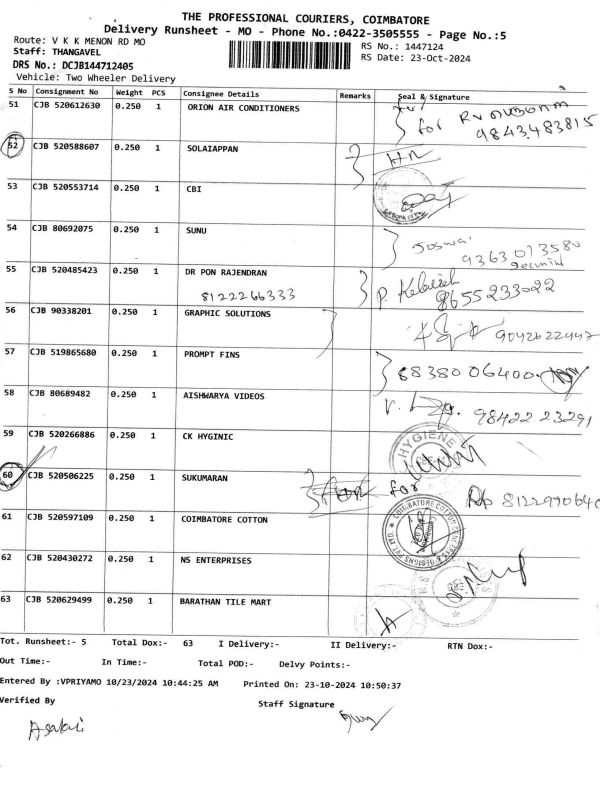 THE PROFESSIONAL COURIERS, COIMBATORE
Delivery Runsheet - MO - Phone No.:0422-3505555 - Page No.:5
Route: V K K MENON RD MO RS No.: 1447124
Staff: THANGAVEL RS Date: 23-Oct-2024
DRS No.: DCJB144712405
Vehicle: Two Wheeler Delivery
S No Consignment No Weight PCS Consignee Details Remarks Seal & Signature
51 CJB 520612630 0.250 1 ORION AIR CONDITIONERS for
9843483815
52 CJB 520588607 0.250 1 SOLAIAPPAN
53 CJB 520553714 0.250 1 CBI
54 CJB 80692075 0.250 1 SUNU
9363013580
55 CJB 520485423 0.250 1 DR PON RAJENDRAN
8122266333 8655233022
56 CJB 90338201 0.250 1 GRAPHIC SOLUTIONS
9042622447
57 CJB 519865680 0.250 1 PROMPT FINS
8838006400
58 CJB 80689482 0.250 1 AISHWARYA VIDEOS
9842223291
59 CJB 520266886 0.250 1 CK HYGINIC HYGIENE
60 CJB 520506225 0.250 1 SUKUMARAN for
61 CJB 520597109 0.250 1 COIMBATORE COTTON
62 CJB 520430272 0.250 1 NS ENTERPRISES
63 CJB 520629499 0.250 1 BARATHAN TILE MART
Tot. Runsheet:- 5 Total Dox:- 63 I Delivery:- II Delivery:- RTN Dox:-
Out Time:- In Time:- Total POD:- Delvy Points:-
Entered By :VPRIYAMO 10/23/2024 10:44:25 AM Printed On: 23-10-2024 10:50:37
Verified By Staff Signature